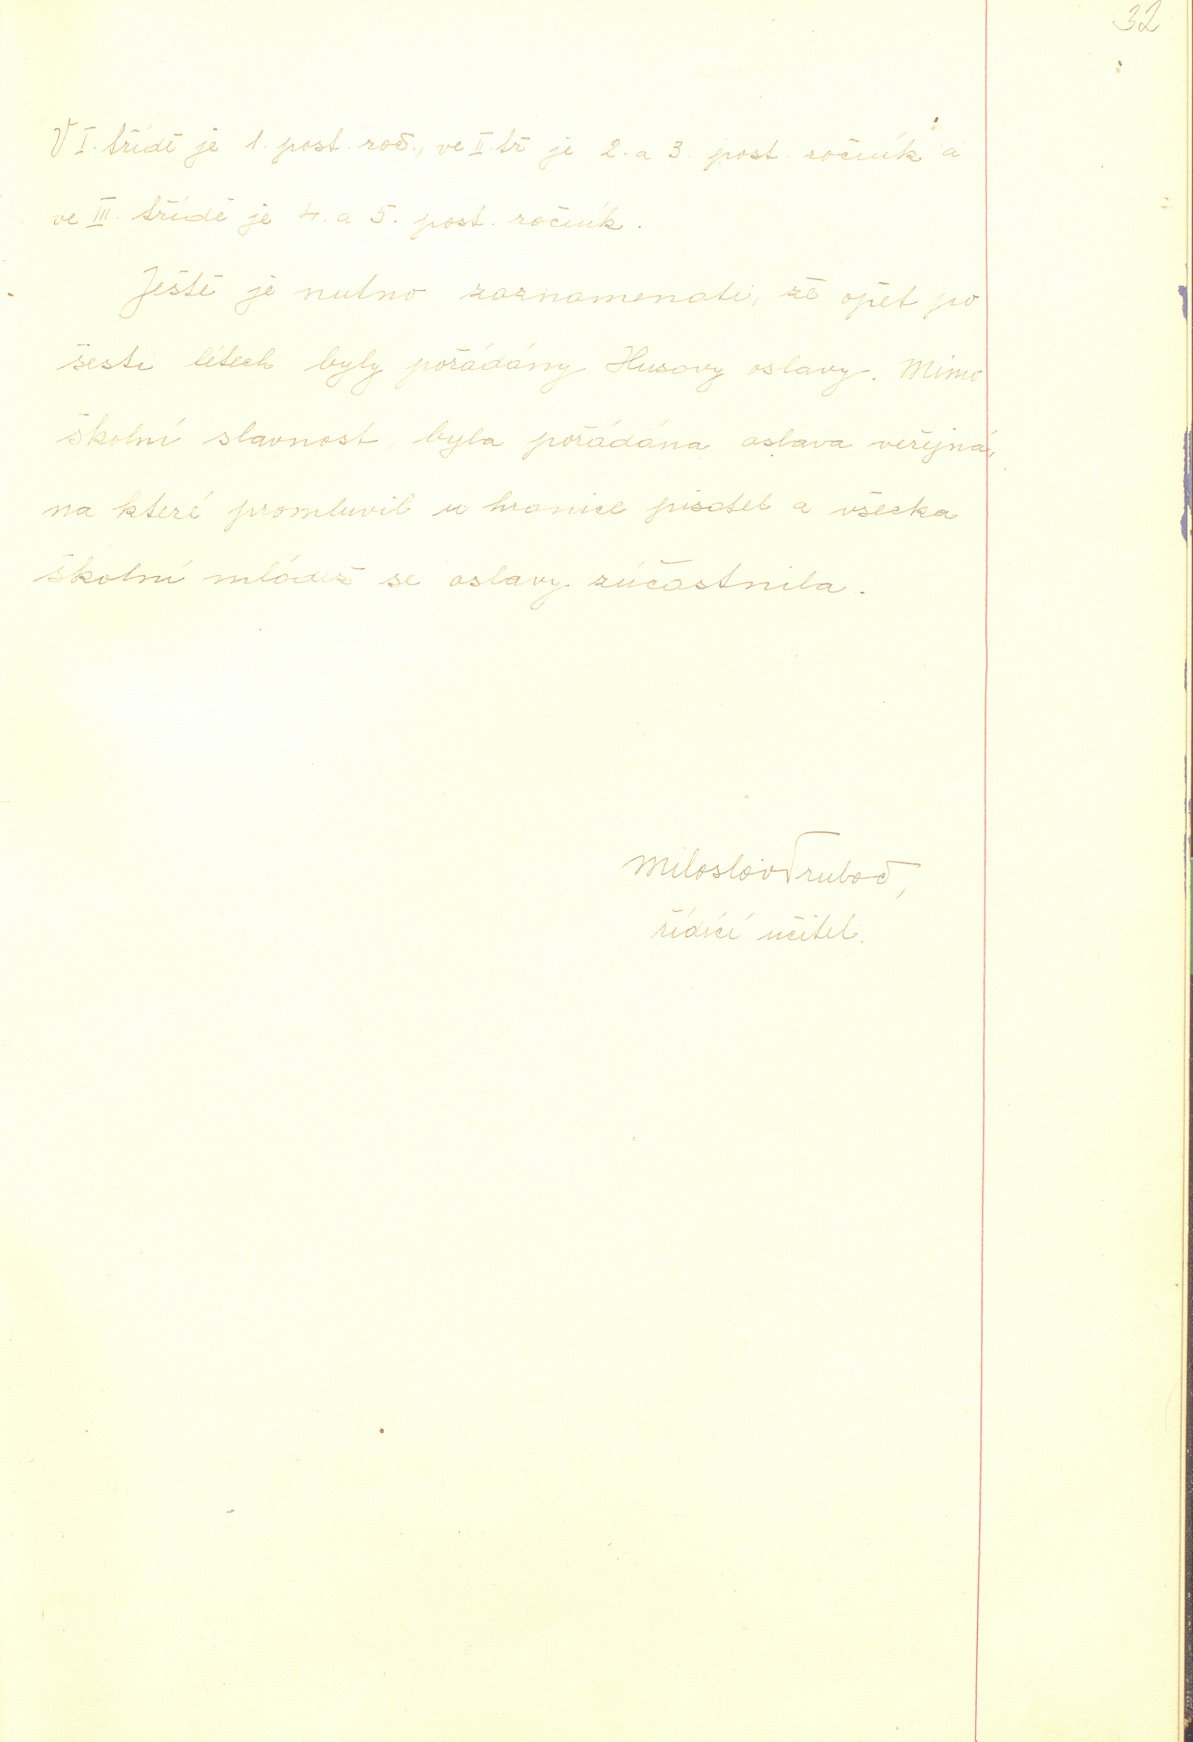 32
V I. třídě je 1. post. roč., ve II. tř je 2. a 3. post. ročník a
ve III. třídě je 4. a 5. post. ročník.
Ještě je nutno zaznamenati, že opět po
šesti létech byly pořádány Husovy oslavy. Mimo
školní slavnost byla pořádána oslava veřejná,
na které promluvil u hranice pisatel a všecka
školní mládež se oslavy zúčastnila.
Miloslav Trubač,
řídící učitel.